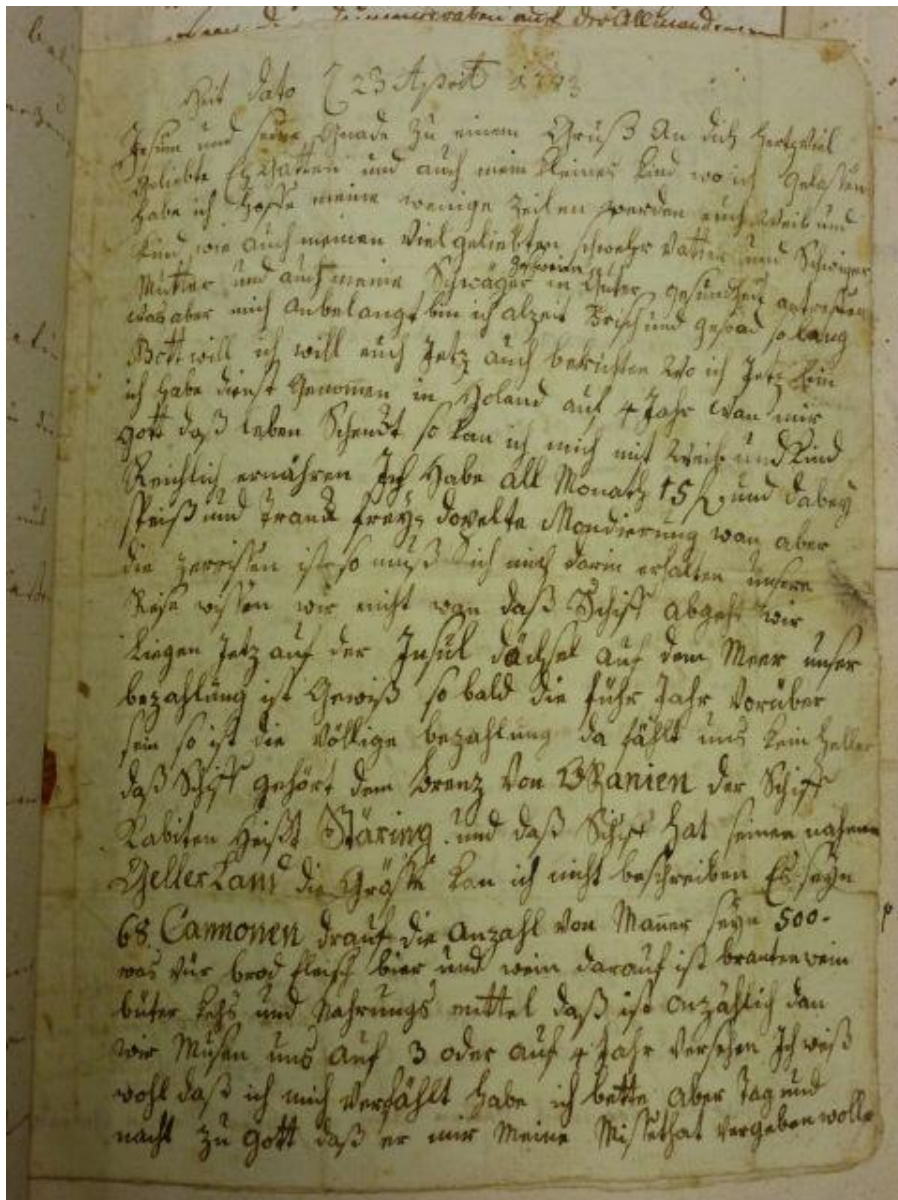 Heit dato 23 Aprill 1773
Jesum und seine Gnade zu einem Gruß An dich Hertzviel
geliebte Ehgattin und auch mein kleines kind wo ich gelassen
habe ich hoffe meine wenige Zeilen werden euch Weib und
kind wie auch meinen Viel geliebten schwehr Vatter und Schwiger
Mutter und auch meine Schwäger in guter gesundheit antreffen
was aber mich anbelangt bin ich alzeit frisch und gesund so lang
Gott will ich will euch Jetz auch berichten wo ich Jetz bin
ich habe dienst genomen in Holand auf 4 Jahr wan mir
Gott daß leben Schenckt so kan ich mich mit Weib und kind
Reichlich ernähren Ich Habe all Monath 15 und dabey
speiß und tranck frey dopelte Mondierung wan aber
die zerrissen ist so muß ich mich darin erhalten unsere
Reise wissen wir nicht wan daß Schiff abgeht wir
liegen Jetz auf der Insul dächsel auf dem Meer unser
bezahlung ist Gewiß so bald die führ Jahr vorüber
sein so ist die völlige bezahlung da fählt uns kein heller
daß Schiff gehört dem brenz von ORanien der Schiff
Kabiten heißt Stäring und daß Schiff hat seinen nahmen
Gellerland die Gröse kan ich nicht beschreiben Es seyn
68 Cannonen drauf die Anzahl von Maner seyn 500.
was vür brod fleisch bier und wein darauf ist branten wein
buter kehs und Nahrungs mittel daß ist onzählich dan
wir Musen uns auf 3 oder auf 4 Jahr versehen Ich weiß
wohl daß ich mich verfählt habe ich bette aber tag und
nacht zu gott daß er mir Meine Missethat vergeben wolle